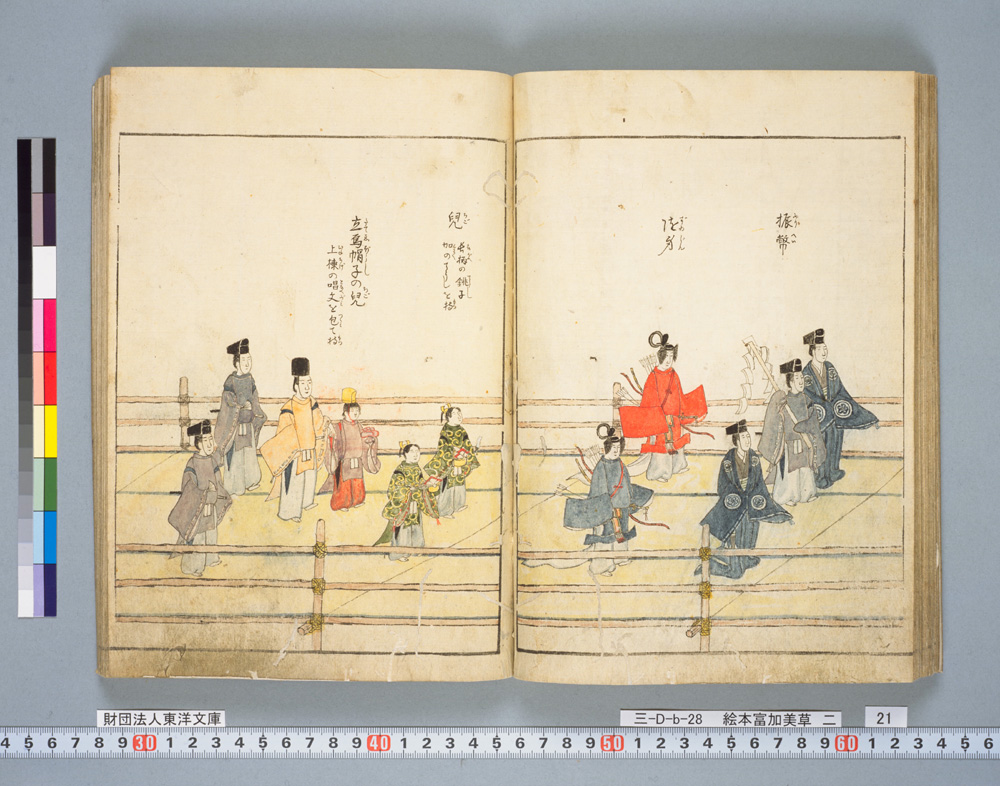 振幣
随身
兒 長柄の銚子
立烏帽子の兒
上棟の唱文を包て持
財団法人東洋文庫
三-D-b-28 絵本富加美草 二
21
4 5 6 7 8 9 30 1 2 3 4 5 6 7 8 9 40 1 2 3 4 5 6 7 8 9 50 1 2 3 4 5 6 7 8 9 60 1 2 3 4 5 6